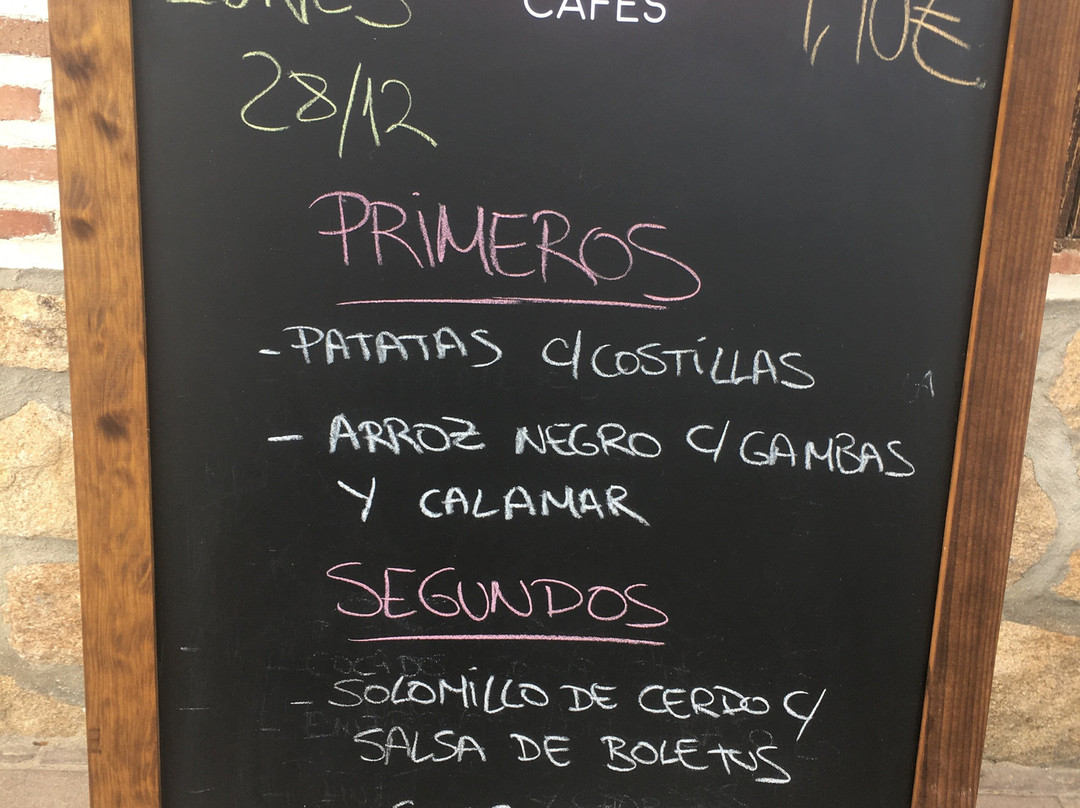 LUNES
CAFÉS
1,10€
28/12
PRIMEROS
- PATATAS C/COSTILLAS
- ARROZ NEGRO C/GAMBAS
Y CALAMAR
SEGUNDOS
- SOLOMILLO DE CERDO C/
SALSA DE BOLETUS